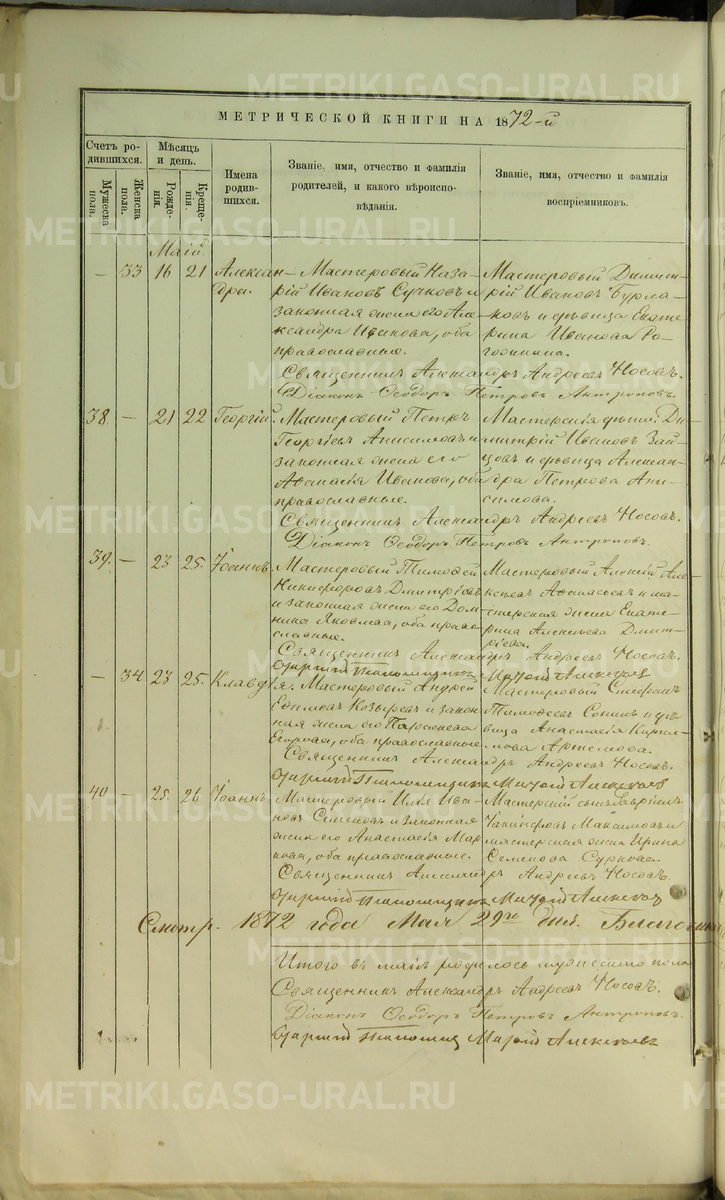 МЕТРИЧЕСКОЙ КНИГИ НА 1872-й
Счетъ родившихся.
Мужеска пола.
Женска пола.
Мѣсяцъ и день.
Рожденія.
Крещенія.
Имена родившихся.
Званіе, имя, отчество и фамилія
родителей, и какого вѣроиспо-
вѣданія.
Званіе, имя, отчество и фамилія
воспріемниковъ.
Маій.
— 33 16 21 Александра.
Мастеровый Наза-
рій Ивановъ Сучковъ и
законная жена его Але-
ксандра Иванова, оба
православные.
Мастеровый Димит-
рій Ивановъ Бурма-
ковъ и дѣвица Екате-
рина Иванова Ро-
гожина.
Священникъ Александръ Андреевъ Носовъ.
Діаконъ Ѳеодоръ Петровъ Антроповъ.
38. — 21 22 Георгій.
Мастеровый Петръ
Георгіевъ Анисимовъ и
законная жена его
Аѳанасія Иванова, оба
православные.
Мастерскія дѣти: Ди-
митрій Ивановъ Зай-
цовъ и дѣвица Алексан-
дра Петрова Ани-
симова.
Священникъ Александръ Андреевъ Носовъ.
Діаконъ Ѳеодоръ Петровъ Антроповъ.
39. — 23 25. Іоаннъ.
Мастеровый Тимоѳей
Никифоровъ Дмитріевъ
и законная жена его Дом-
ника Яковлева, оба право-
славные.
Мастеровый Алексій Але-
ксѣевъ и ма-
стерская жена Екате-
рина Алексѣева Дмит-
ріева.
Священникъ Александръ Андреевъ Носовъ.
— 34. 23 25. Клавдія.
Мастеровый Андрей
Евдимовъ Козыревъ и закон-
ная жена его Параскева
Егорова, оба православные.
Мастеровый Стефанъ
Тимоѳеевъ и дѣ-
вица Анастасія Кирил-
лова Артемова.
Священникъ Александръ Андреевъ Носовъ.
40 — 25. 26 Іоаннъ.
Мастеровый Илія Ива-
новъ Семеновъ и законная
жена его Анастасія Мар-
кова, оба православные.
Мастерскій сынъ Гавріилъ
Іакинфовъ Максимовъ и
мастерская жена Ирина
Семенова Суркова.
Священникъ Александръ Андреевъ Носовъ.
Смотр. 1872 года Мая 29го дня.
Итого въ маіѣ родилось мужескаго пола
Священникъ Александръ Андреевъ Носовъ.
Діаконъ Ѳеодоръ Петровъ Антроповъ.
METRIKI.GASO-URAL.RU